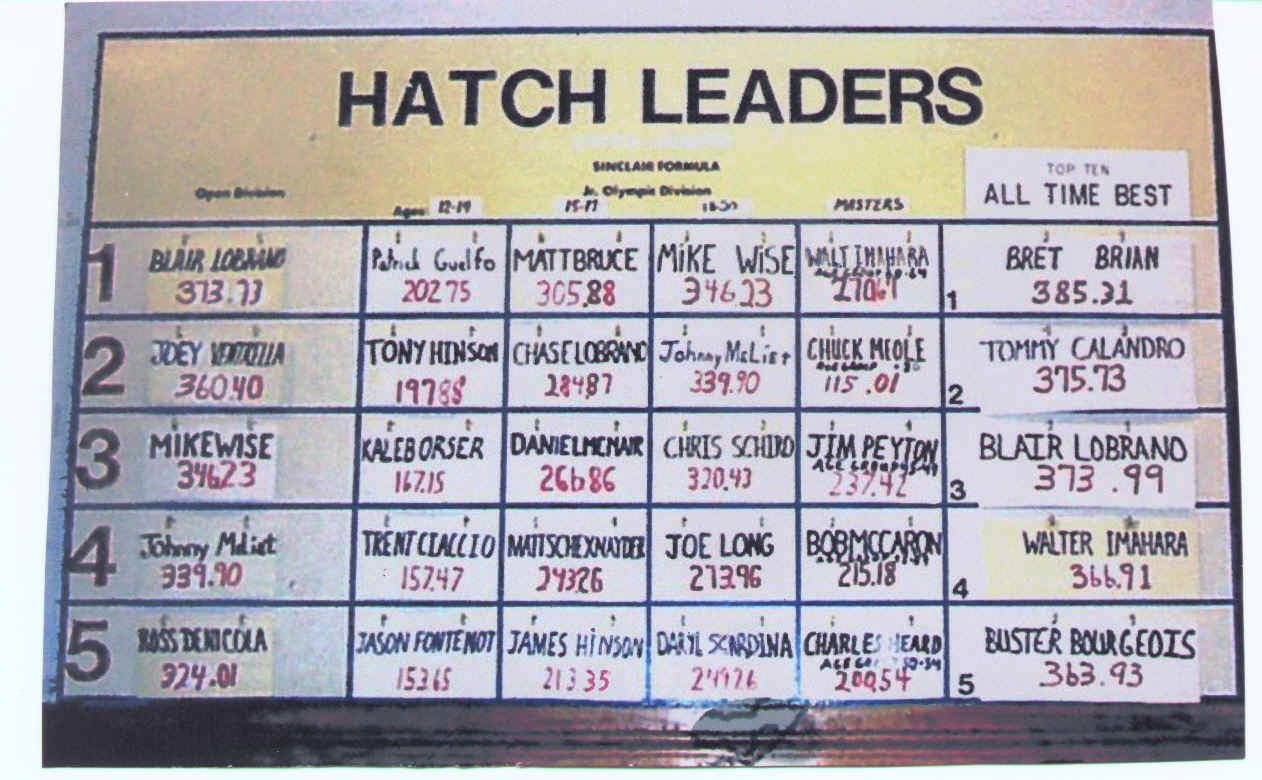 HATCH LEADERS
SINCLAIR FORMULA
Open Division
Jr. Olympic Division
TOP TEN
ALL TIME BEST
Ages: 12-14 15-17 MASTERS
1 BLAIR LOBRANO Patrick Guelfo MATT BRUCE MIKE WISE WALT IMAHARA 1 BRET BRIAN
373.73 202.75 305.88 346.23 385.31
2 JOEY TONY HINSON CHASE LOBRANO Johnny McList CHUCK MEOLE 2 TOMMY CALANDRO
360.40 197.88 284.87 339.90 115.01 375.73
3 MIKE WISE KALEB ORSER DANIEL MCNAIR CHRIS SCHIRO JIM PEYTON 3 BLAIR LOBRANO
AGE GROUP 45-49
346.23 167.15 266.86 320.43 237.42 373.99
4 Johnny McList TRENT CIACCIO MATT SCHEXNAYDER JOE LONG BOB MCCARON 4 WALTER IMAHARA
339.90 157.47 243.26 273.96 215.18 366.91
5 ROSS DENICOLA JASON FONTENOT JAMES HINSON DARYL SCARDINA CHARLES HEARD 5 BUSTER BOURGEOIS
324.01 153.65 213.35 249.26 200.54 363.93